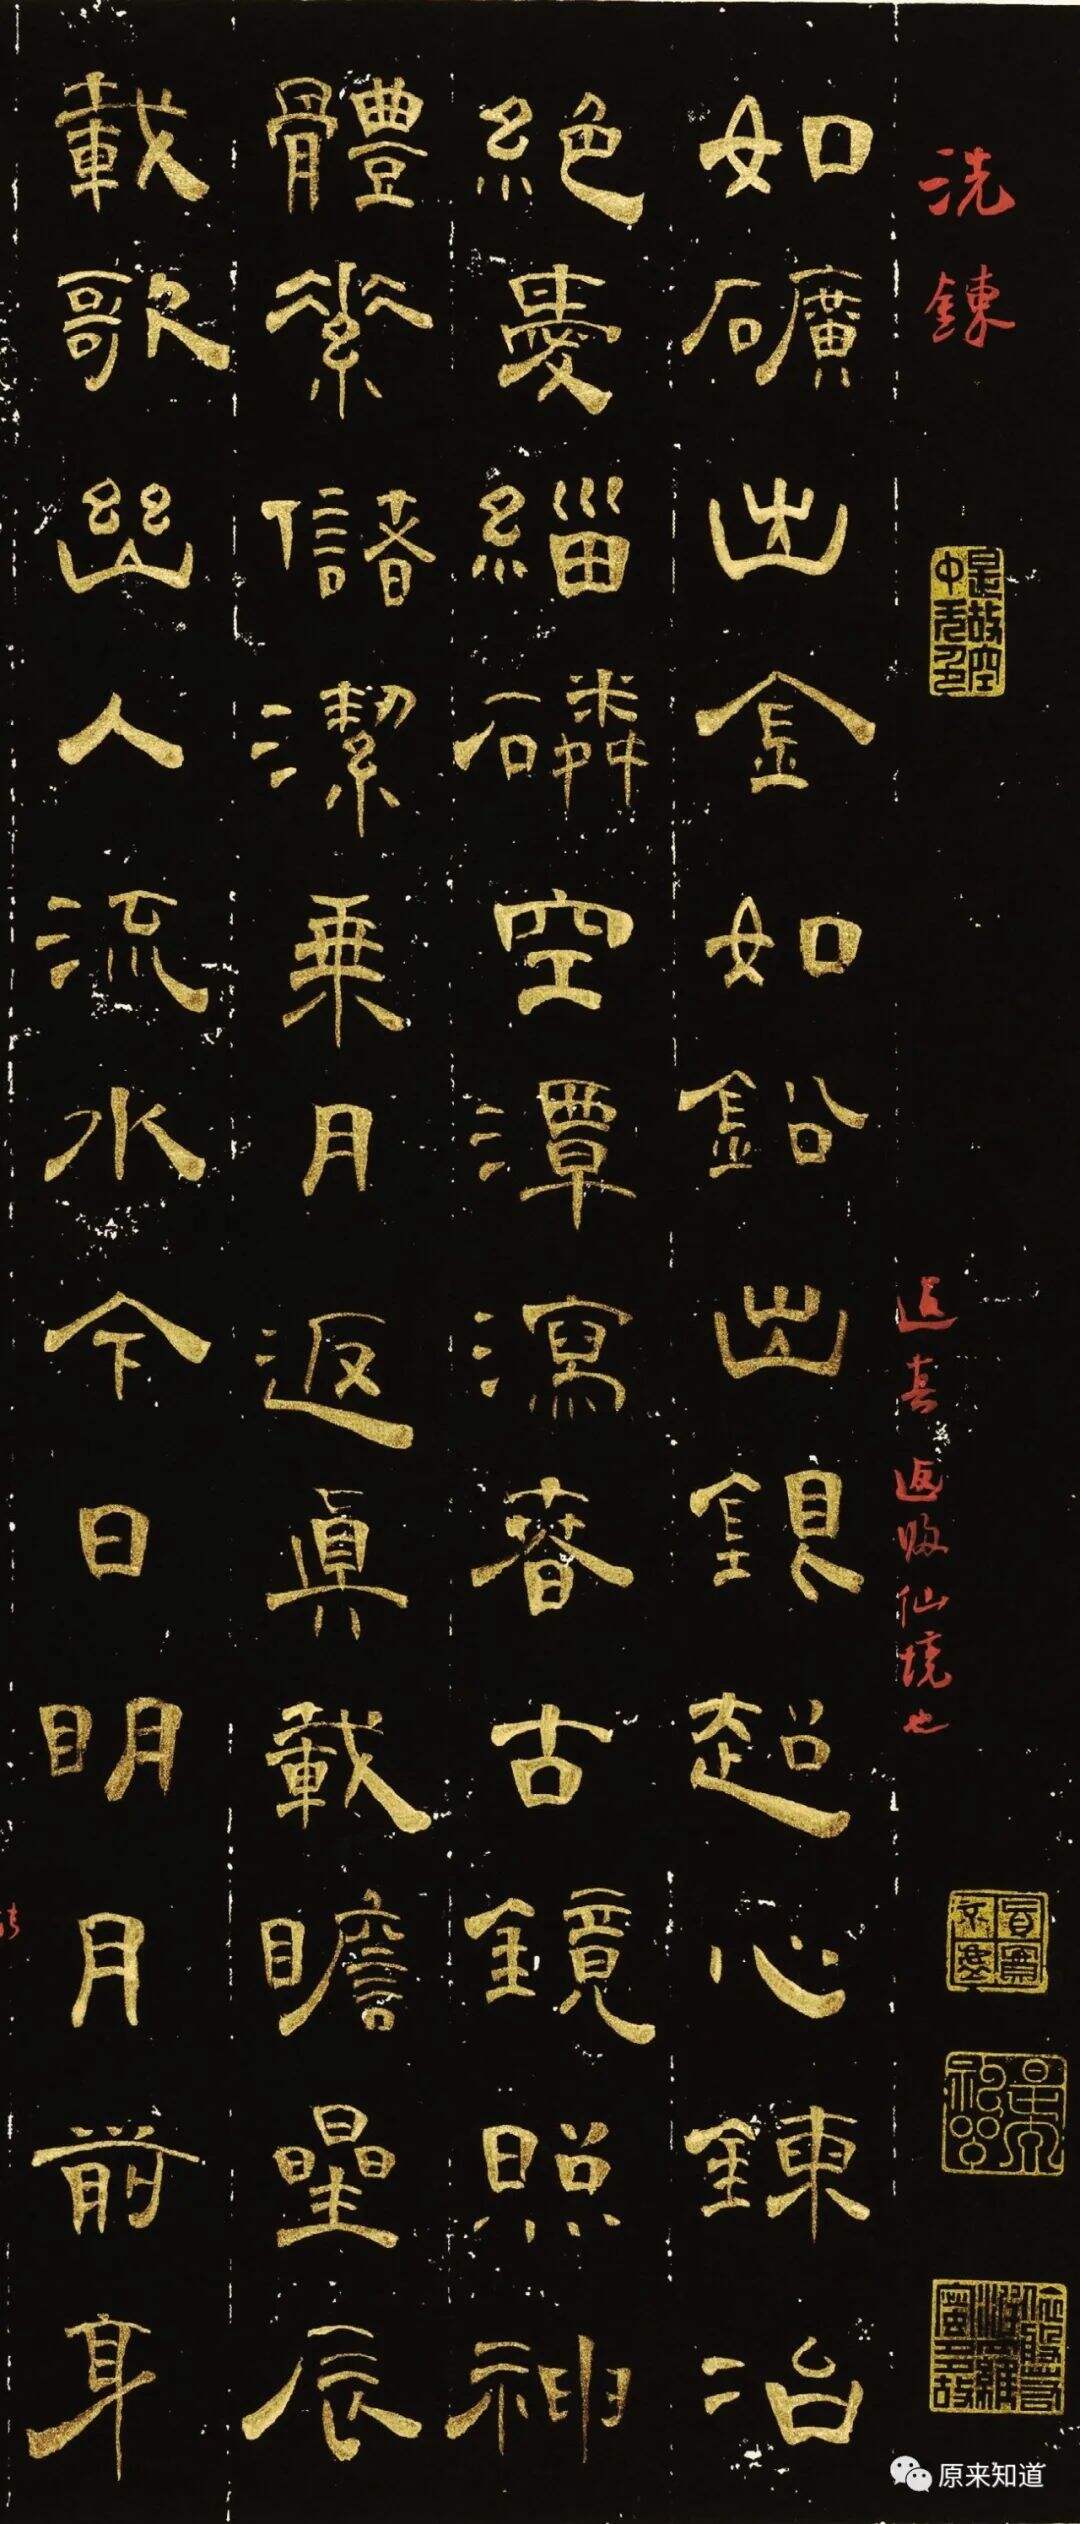 洗鍊
是故空中无色
返 仙境也
如礦出金如鉛出銀超心鍊冶
絕愛緇磷空潭瀉春古鏡照神
體素儲潔乘月返眞載瞻曐辰
載歌幽人流水今日明月前身
原来知道